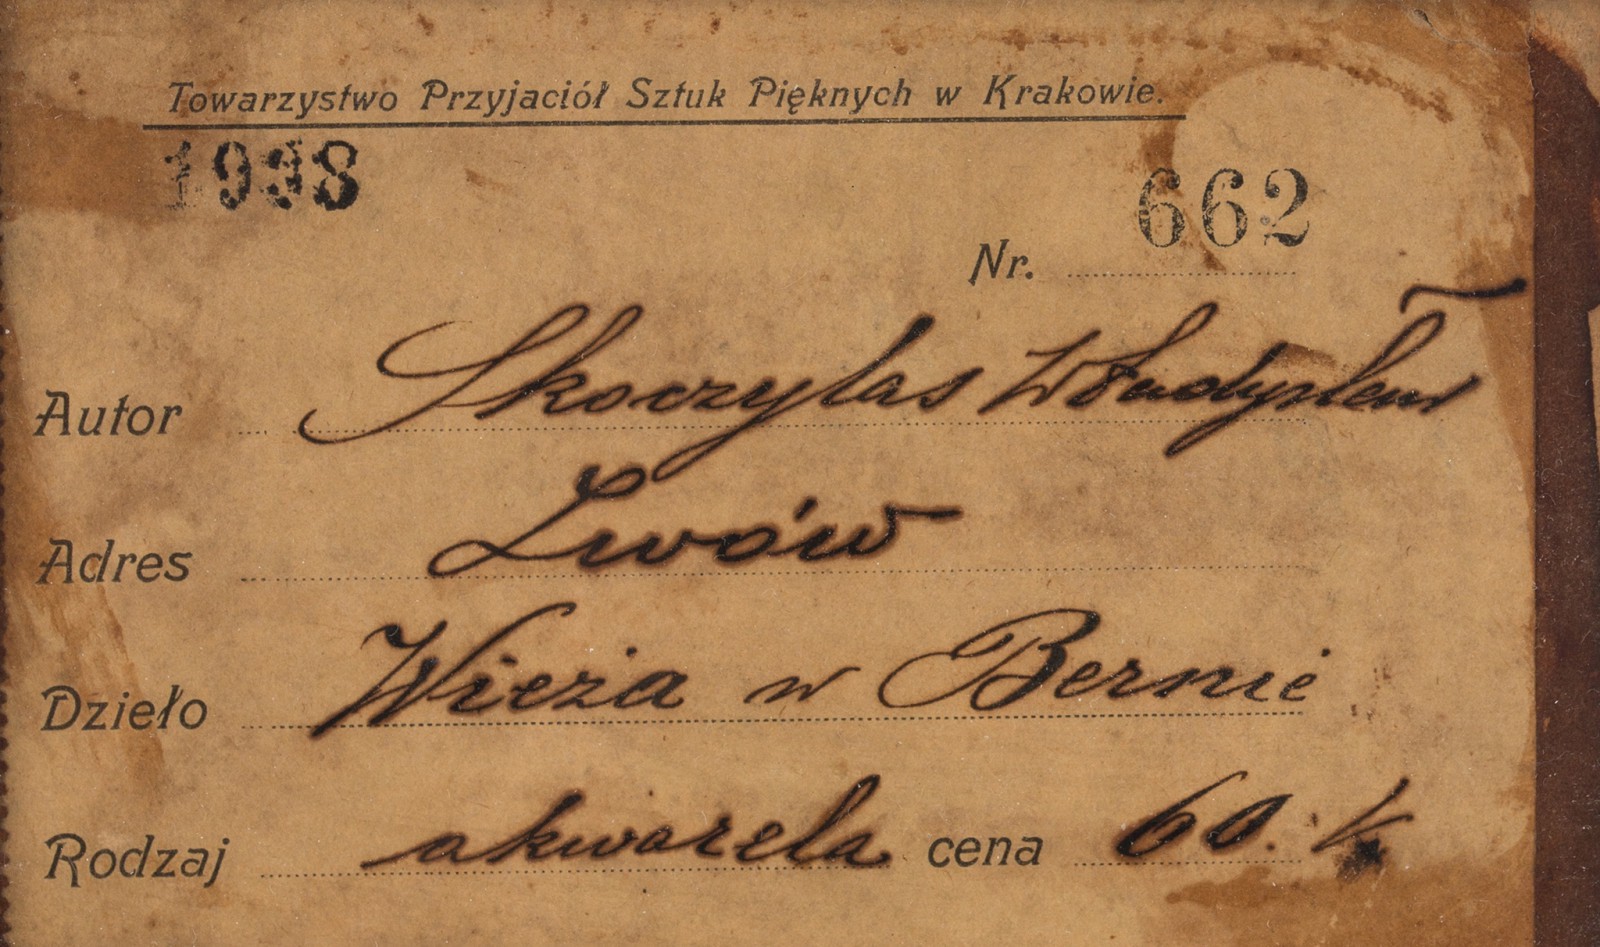 Towarzystwo Przyjaciół Sztuk Pięknych w Krakowie.
1998
Nr. 662
Autor Skoczylas Władysław
Adres Lwów
Dzieło Wieża w Bernie
Rodzaj akwarela cena 60. k